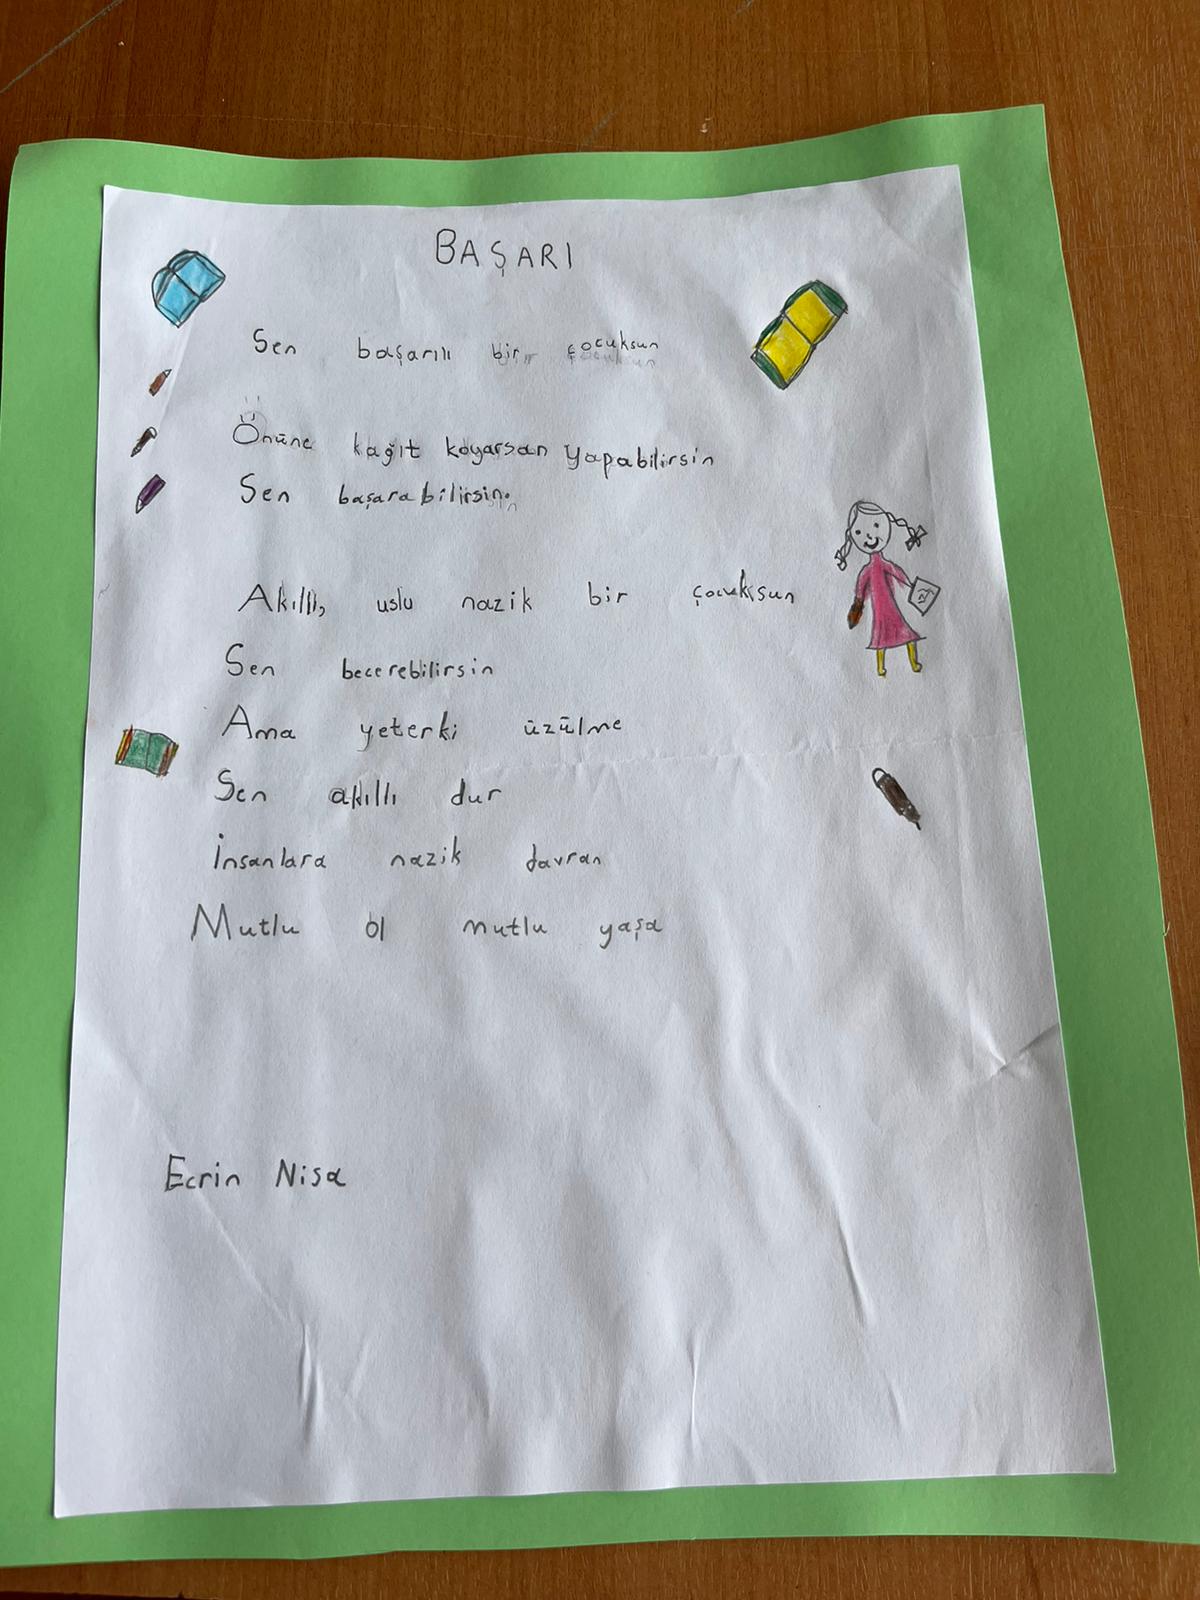 BAŞARI
Sen başarılı bir çocuksun
Önüne kağıt koyarsan yapabilirsin
Sen başarabilirsin.
Akıllı, uslu nazik bir çocuksun
Sen becerebilirsin
Ama yeterki üzülme
Sen akıllı dur
İnsanlara nazik davran
Mutlu ol mutlu yaşa
Ecrin Nisa